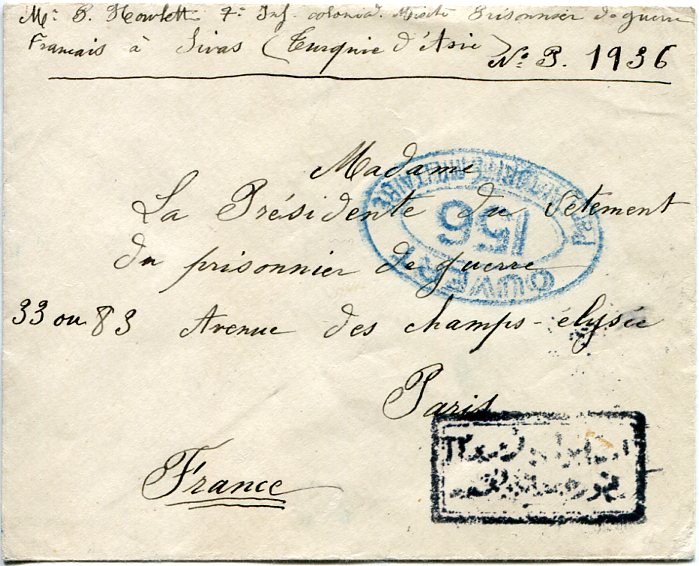 Mr B. Howlett 7e Inf. colonial Mixte Prisonnier de guerre
Francais à Sivas (Turquie d'Asie) No P. 1936
Madame
La Présidente du Vêtement
du prisonnier de guerre
33 ou 83 Avenue des champs-élysée
Paris
France
OUVERT
PAR L'AUTORITÉ MILITAIRE
156